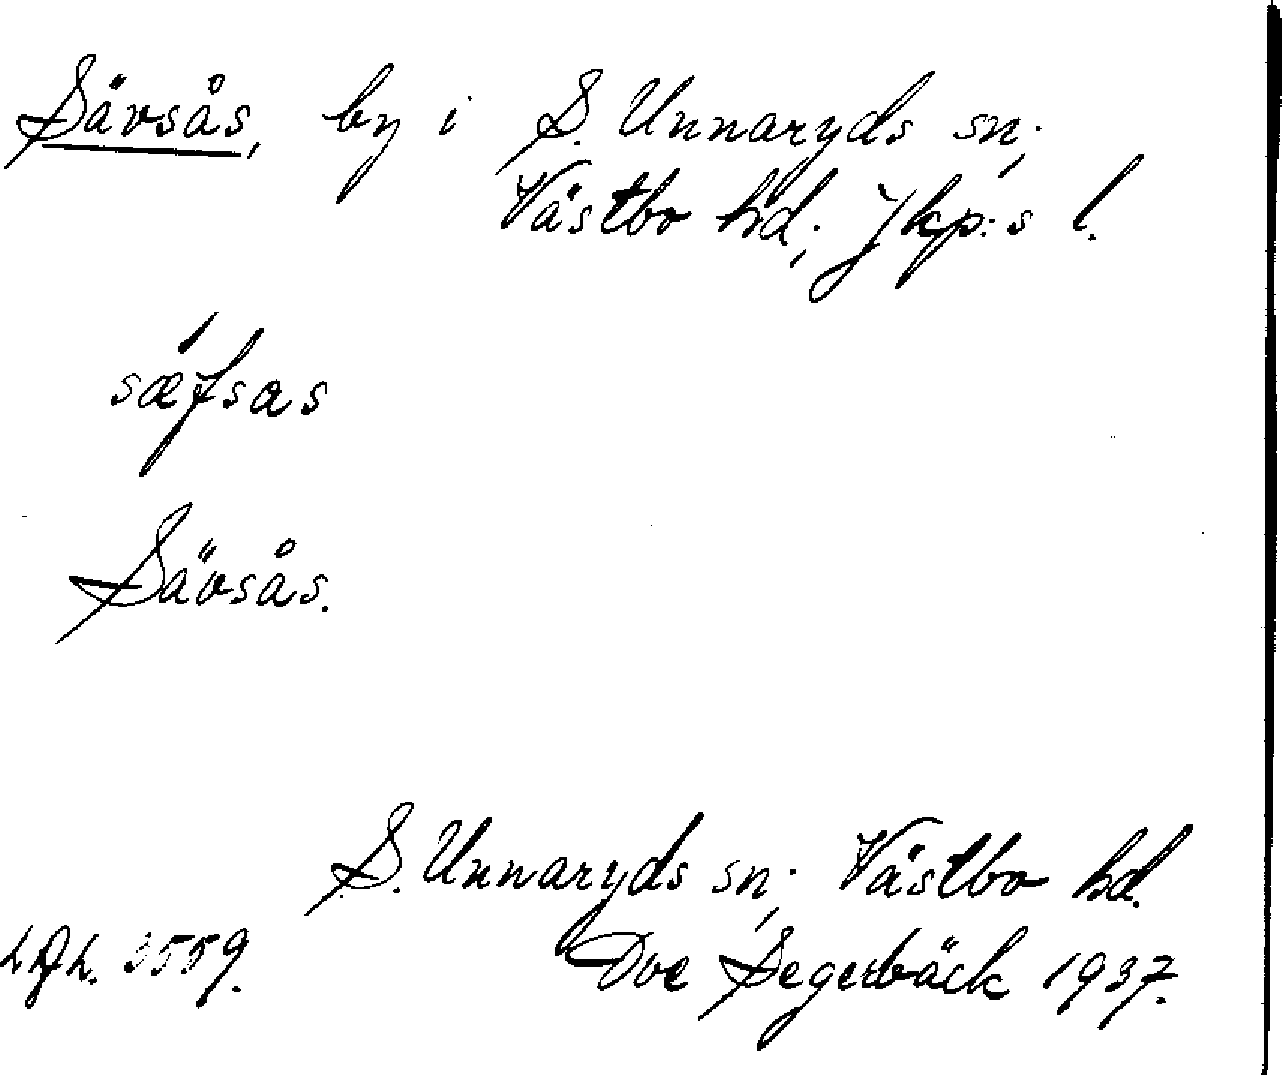 Sävsås, by i S. Unnaryds sn.,
Västbo hd., Jkp:s l.
sǽfsas
Sävsås.
S. Unnaryds sn., Västbo hd.
3559. Ove Segerbäck 1937.